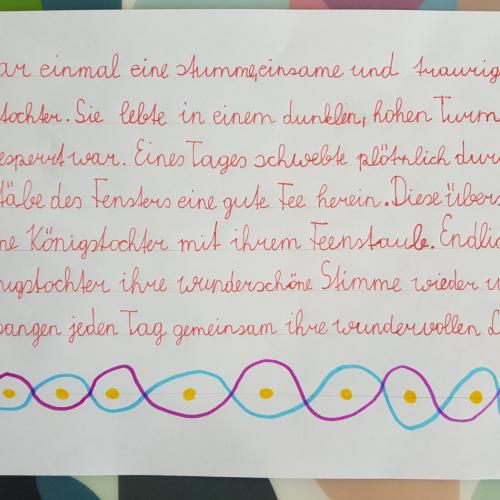 ar einmal eine stumme, einsame und traurig
tochter. Sie lebte in einem dunklen, hohen Turm
esperrt war. Eines Tages schwebte plötzlich dur
täbe des Fensters eine gute Fee herein. Diese übers
ne Königstochter mit ihrem Feenstaub. Endlic
nigstochter ihre wunderschöne Stimme wieder u
sangen jeden Tag gemeinsam ihre wundervollen L